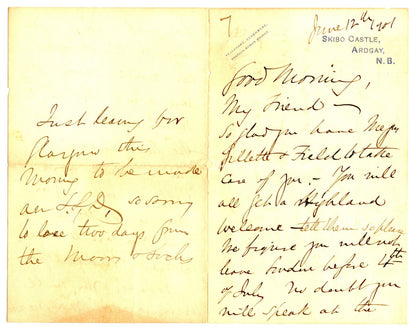 7
June 12th 1901
SKIBO CASTLE,
ARDGAY,
N.B.
Good Morning,
My Friend —
So glad you have Messrs
Gillette & Field to take
care of you — You will
all get a Highland
welcome — tell them so please
We figure you will not
leave London before 4th
of July No doubt you
will speak at the
Just leaving for
Glasgow this
Morning to be made
an LLD, so sorry
to lose two days from
the Moors & Lochs